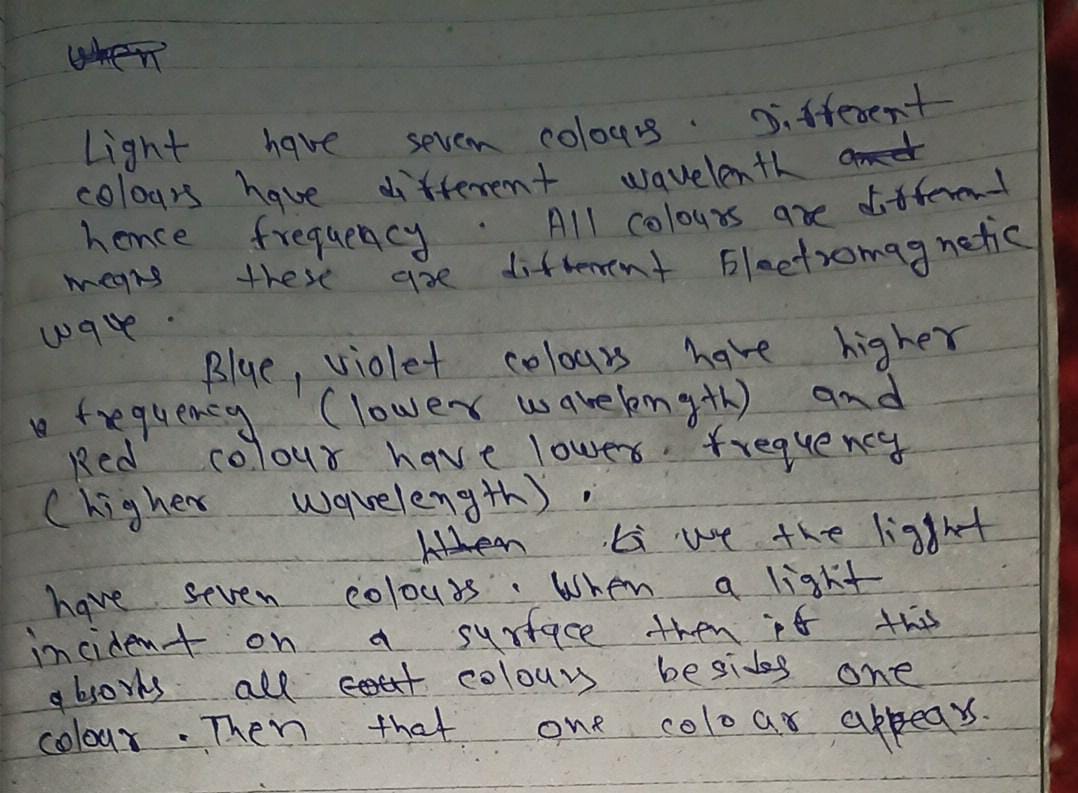 when
Light have seven colours. Different
colours have different wavelenth and
hence frequency. All colours are different
means these are different Electromagnetic
wave.
Blue, violet colours have higher
frequency (lower wavelength) and
Red colour have lower frequency
(higher wavelength).
When the ligght
have seven colours. When a light
incident on a surface then if this
absorbs all colours besides one
colour. Then that one colour appears.